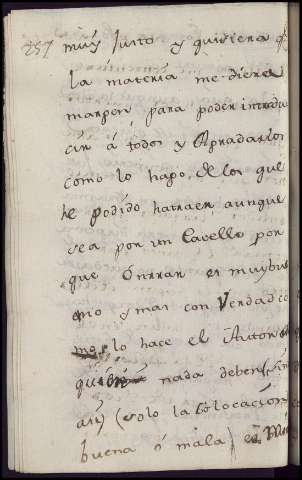 257 muy Justo y quisiera q
la materia me diera
marpen para poder introdu
cir á todos y Agradarlos
como lo hapo, de los que
he podido hatraer, aunque
sea por un Cavello por
que Onrrar es muy bue
eno y mas con Verdad co
mo lo hace el Autor
quien nada deben
asi (solo la Colocacion
buena ó mala)